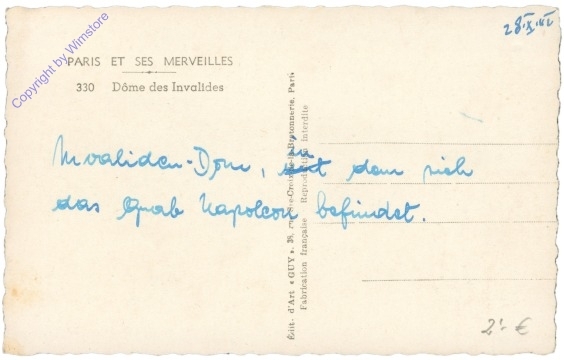 28.X.41
Copyright by Wimstore
PARIS ET SES MERVEILLES
330 Dôme des Invalides
Invaliden-Dom, in dem sich
das Grab Napoleon befindet.
Édit. d'Art « GUY », 28, rue Ste-Croix-de-la-Bretonnerie, Paris
Fabrication française Reproduction interdite
2.- €